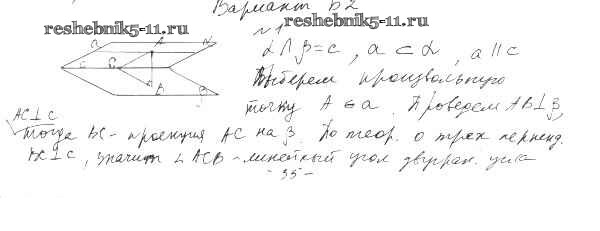 Вариант Б2
reshebnik5-11.ru reshebnik5-11.ru
№1
α ∩ β = c, a ⊂ α, a || c
Выберем произвольную
точку A ∈ a. Проведем AB ⊥ β,
AC ⊥ c
Тогда BC - проекция AC на β. По теор. о трех перпенд.
BC ⊥ c, значит ∠ACB - линейный угол двугран. угла
- 35 -
a A α
c C
B β